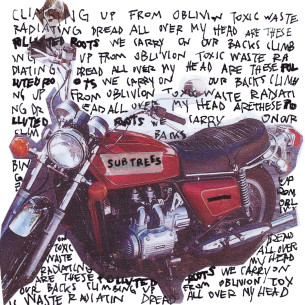 CLIMBING UP FROM OBLIVION TOXIC WASTE
RADIATING DREAD ALL OVER MY HEAD ARE THESE
POLLUTED ROOTS WE CARRY ON OUR BACKS CLIMB
ING UP FROM OBLIVION TOXIC WASTE RA
DIATING DREAD ALL OVER MY HEAD ARE THESE POL
LUTED ROOTS WE CARRY ON OUR BACKS CLIMB
ING UP FROM OBLIVION TOXIC WASTE RADIATI
NG DREAD ALL OVER MY HEAD ARE THESE PO
LLUTED ROOTS WE CARRY ON OUR
CLIM BACKS
BIN
SUBTREES
UP
ROM
OBL
IV
DREAD
TOXIC ALL OVER
WASTE MY HEAD
RADIATING
ARE THESE POLLUTED ROOTS WE CARRY ON
OUR BACKS CLIMBING UP FROM OBLIVION TOX
IC WASTE RADIATIN DREAD ALL OVER MY HEAD